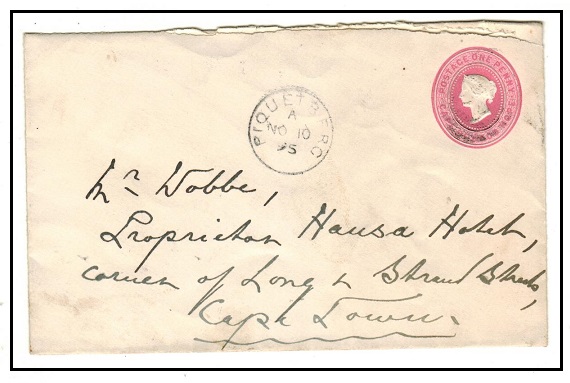 POSTAGE ONE PENNY
CAPE OF GOOD HOPE
PIQUETBERG
A
NO 10
95
Mr Wobbe,
Proprietor Hansa Hotel,
corner of Long & Strand Streets,
Cape Town.